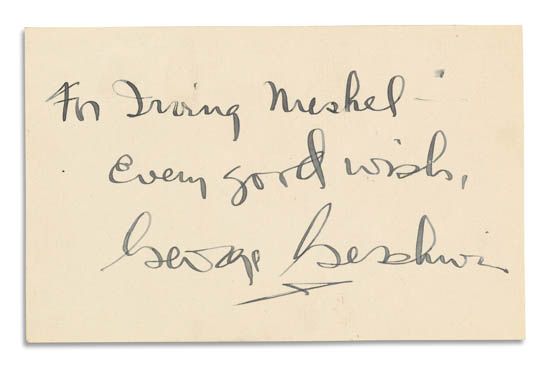 For Irving Meshel –
Every good wish,
George Gershwin